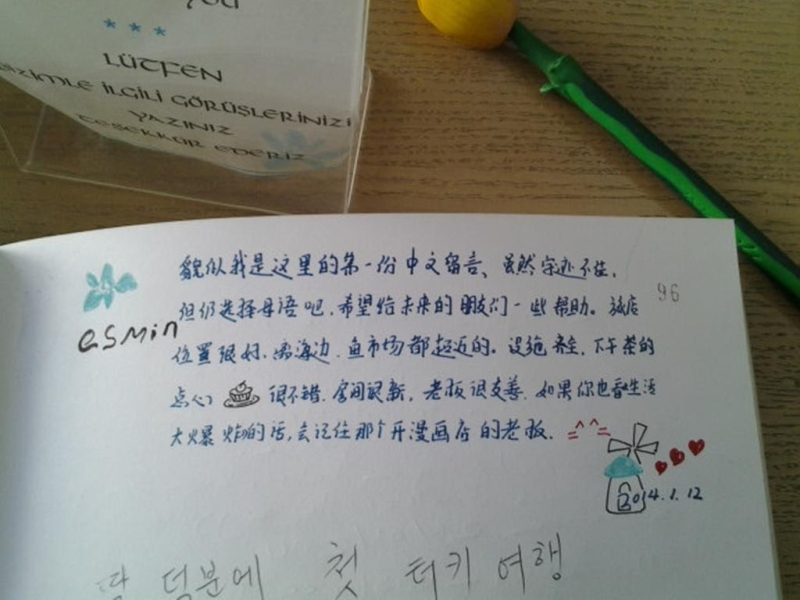 you
* * *
LÜTFEN
BİZİMLE İLGİLİ GÖRÜŞLERİNİZİ
YAZINIZ
TEŞEKKÜR EDERİZ
esmin
96
貌似我是这里的第一份中文留言、虽然字迹不佳,
但仍选择母语吧,希望给未来的朋友们一些帮助。旅店
位置很好,离海边、鱼市场都超近的。设施齐全,下午茶的
点心 很不错,房间很新,老板很友善,如果你也看生活
大爆炸的话,会记住那个开漫画店的老板.
=^^=
2014.1.12
덕분에 첫 터키 여행